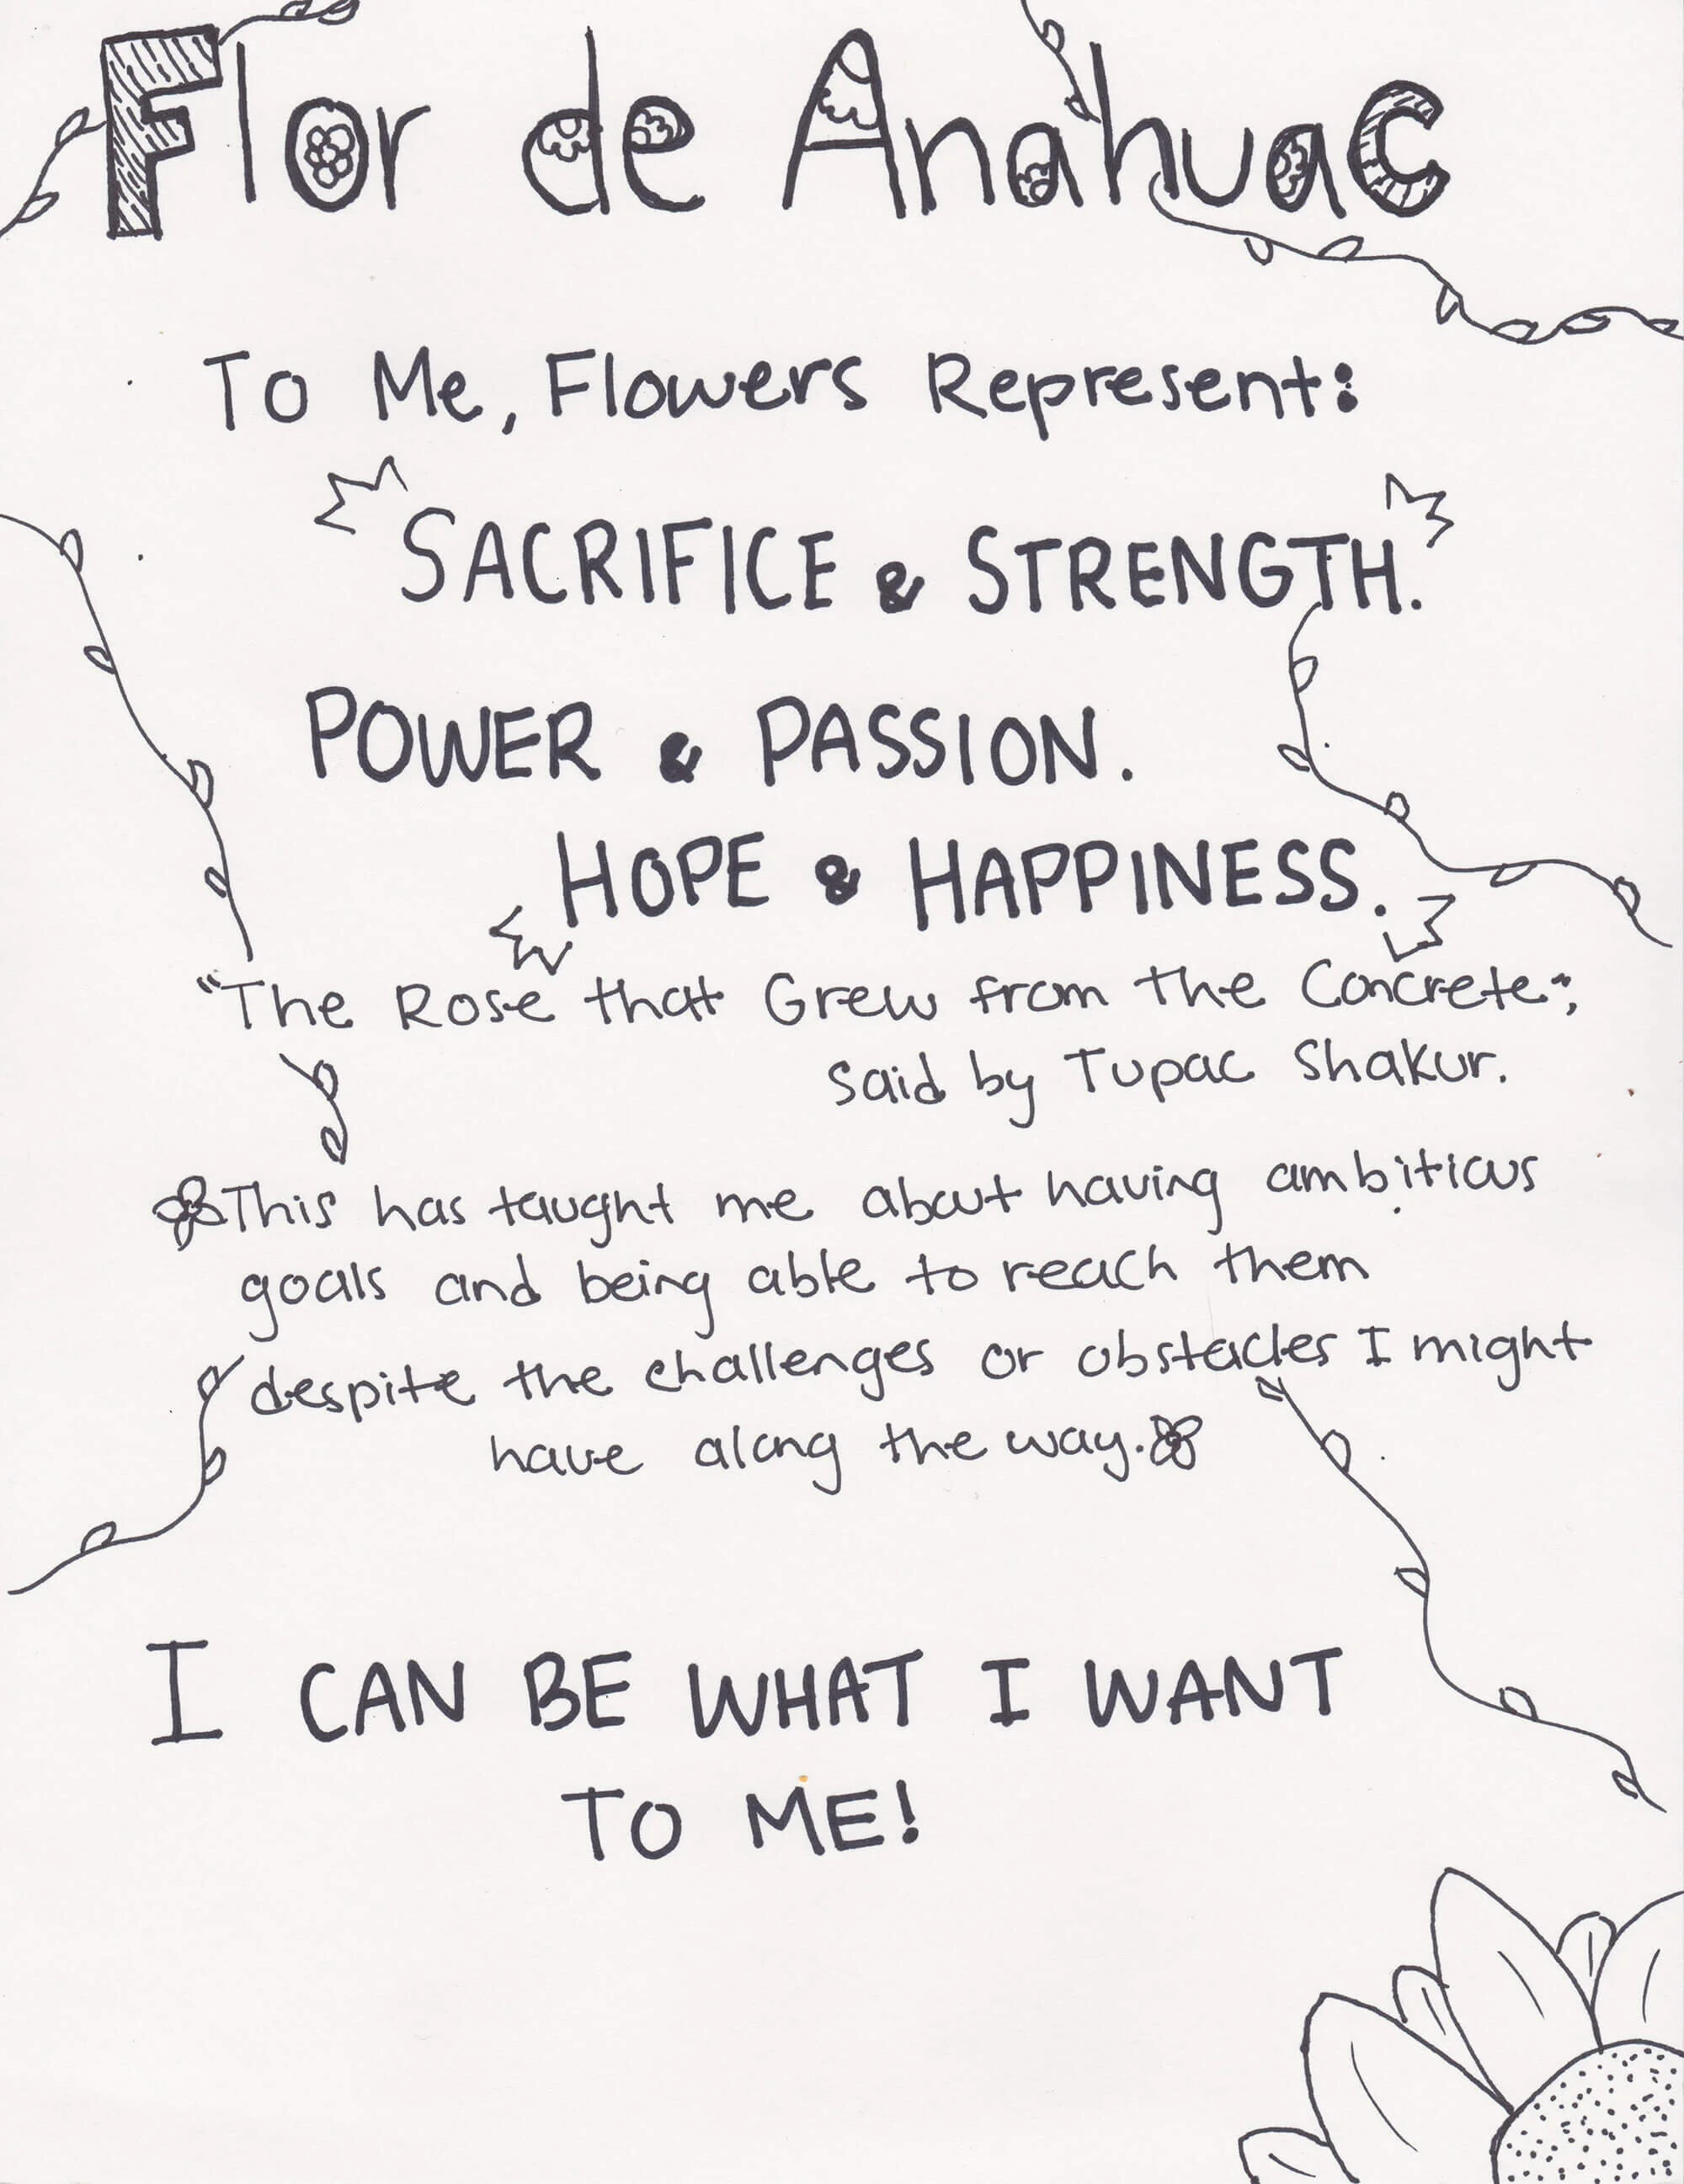 Flor de Anahuac
To Me, Flowers Represent:
SACRIFICE & STRENGTH.
POWER & PASSION.
HOPE & HAPPINESS.
"The Rose that Grew from the Concrete",
said by Tupac Shakur.
This has taught me about having ambitious
goals and being able to reach them
despite the challenges or obstacles I might
have along the way.
I CAN BE WHAT I WANT
TO ME!